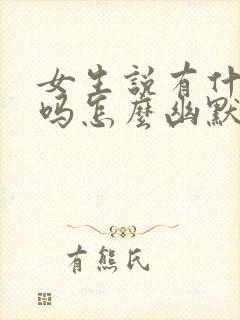 女生説有什
嗎怎麼幽默
有熊氏